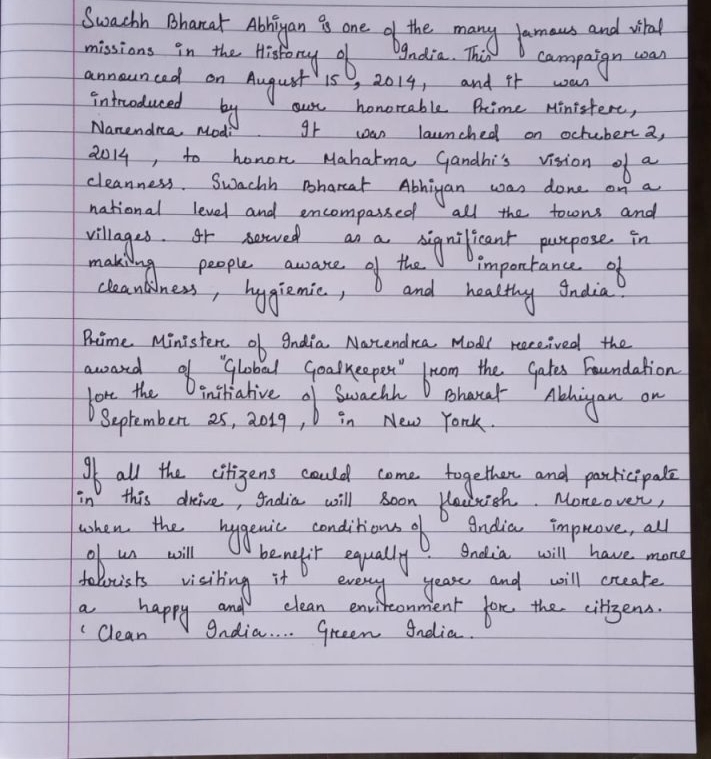 Swachh Bharat Abhiyan is one of the many famous and vital
missions in the History of India. This campaign was
announced on August 15, 2014, and it was
introduced by our honorable Prime Minister,
Narendra Modi. It was launched on octuber 2,
2014, to honor Mahatma Gandhi's vision of a
cleanness. Swachh Bharat Abhiyan was done on a
national level and encompassed all the towns and
villages. It served as a significant purpose in
making people aware of the importance of
cleanliness, hygiemic, and healthy India.
Prime Minister of India Narendra Modi received the
award of "Global Goalkeeper" from the Gates Foundation
for the initiative of Swachh Bharat Abhiyan on
September 25, 2019, in New York.
If all the citizens could come together and participate
in this drive, India will soon flourish. Moreover,
when the hygenic conditions of India improve, all
of us will benefit equally. India will have more
tourists visiting it every year and will create
a happy and clean environment for the citizens.
' Clean India.... Green India.